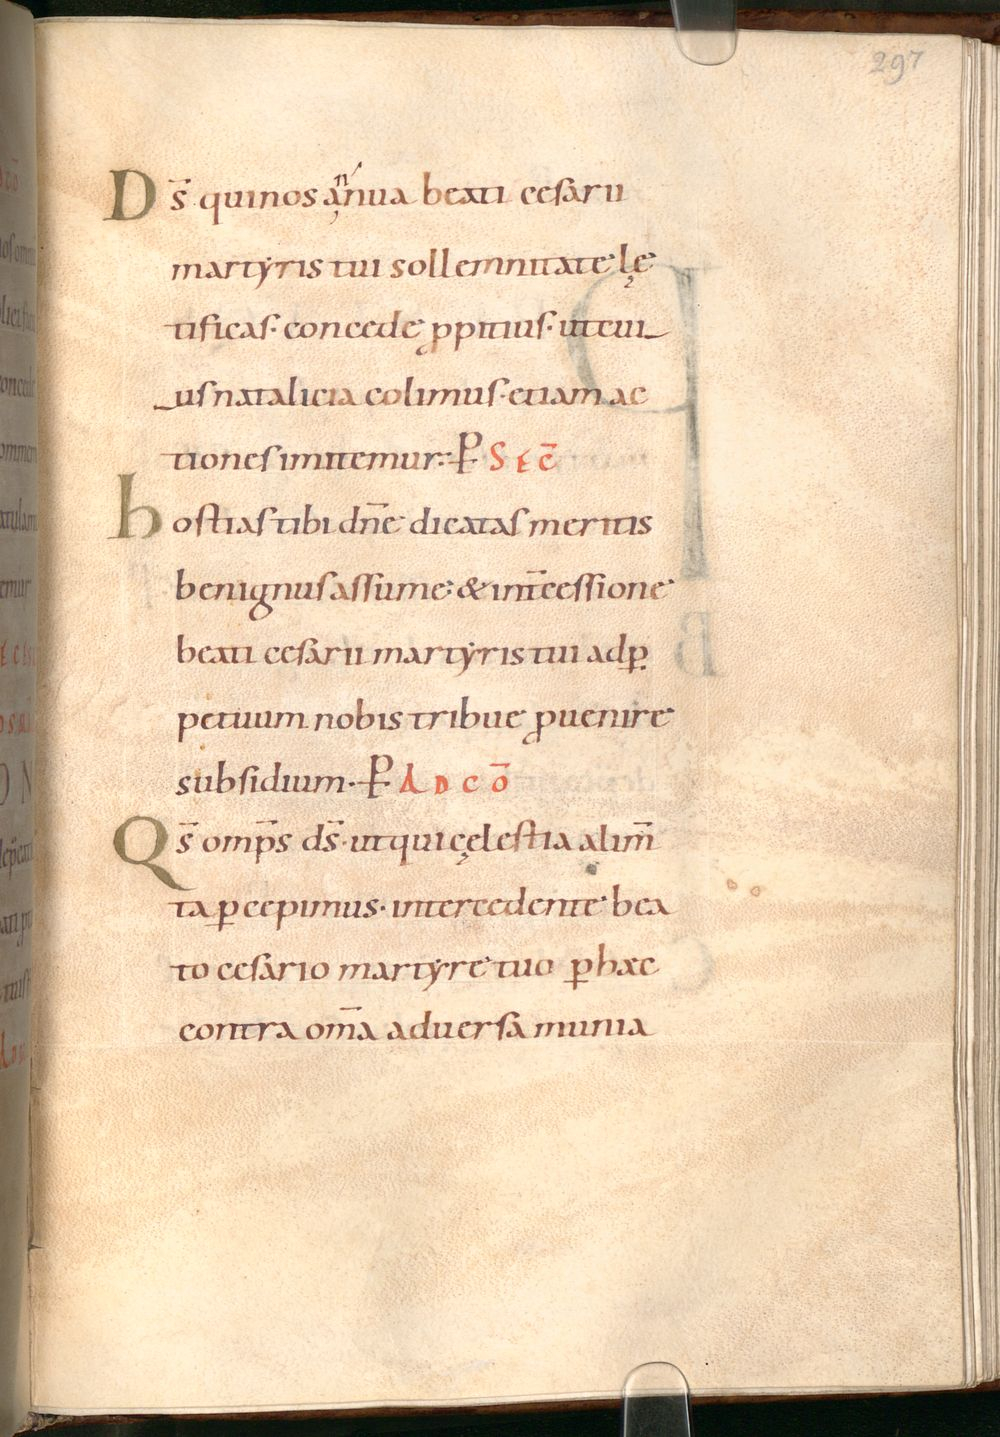 297
Ds̄ quinos a̧ⁿnua beati cesarii
martẏris tui sollemnitate lę
tificas· concede ꝓpitius· ut cui
us natalicia colimus· etiam ac
tiones imitemur·: P SEC̄
hostias tibi dn̄e dicatas meritis
benignus assume· & int̄cessione
beati cesarii martẏris tui ad ꝑ
petuum nobis tribue ꝓuenire
subsidium· P AD CŌ
Qs̄ omp̄s ds̄· ut qui cęlestia alim̄
ta ꝑcepimus· intercedente bea
to cesario martẏre tuo ꝑ haec
contra om̄a aduersa munia